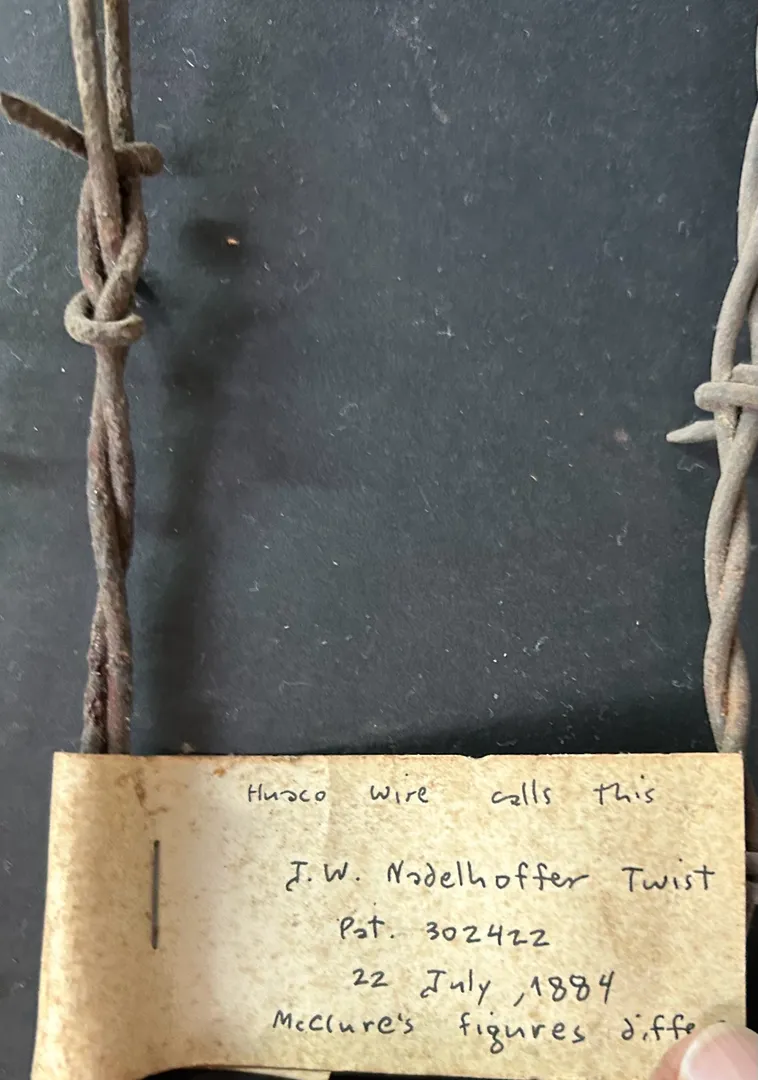 Huaco wire calls this
J.W. Nadelhoffer Twist
Pat. 302422
22 July, 1884
McClure's figures diffe